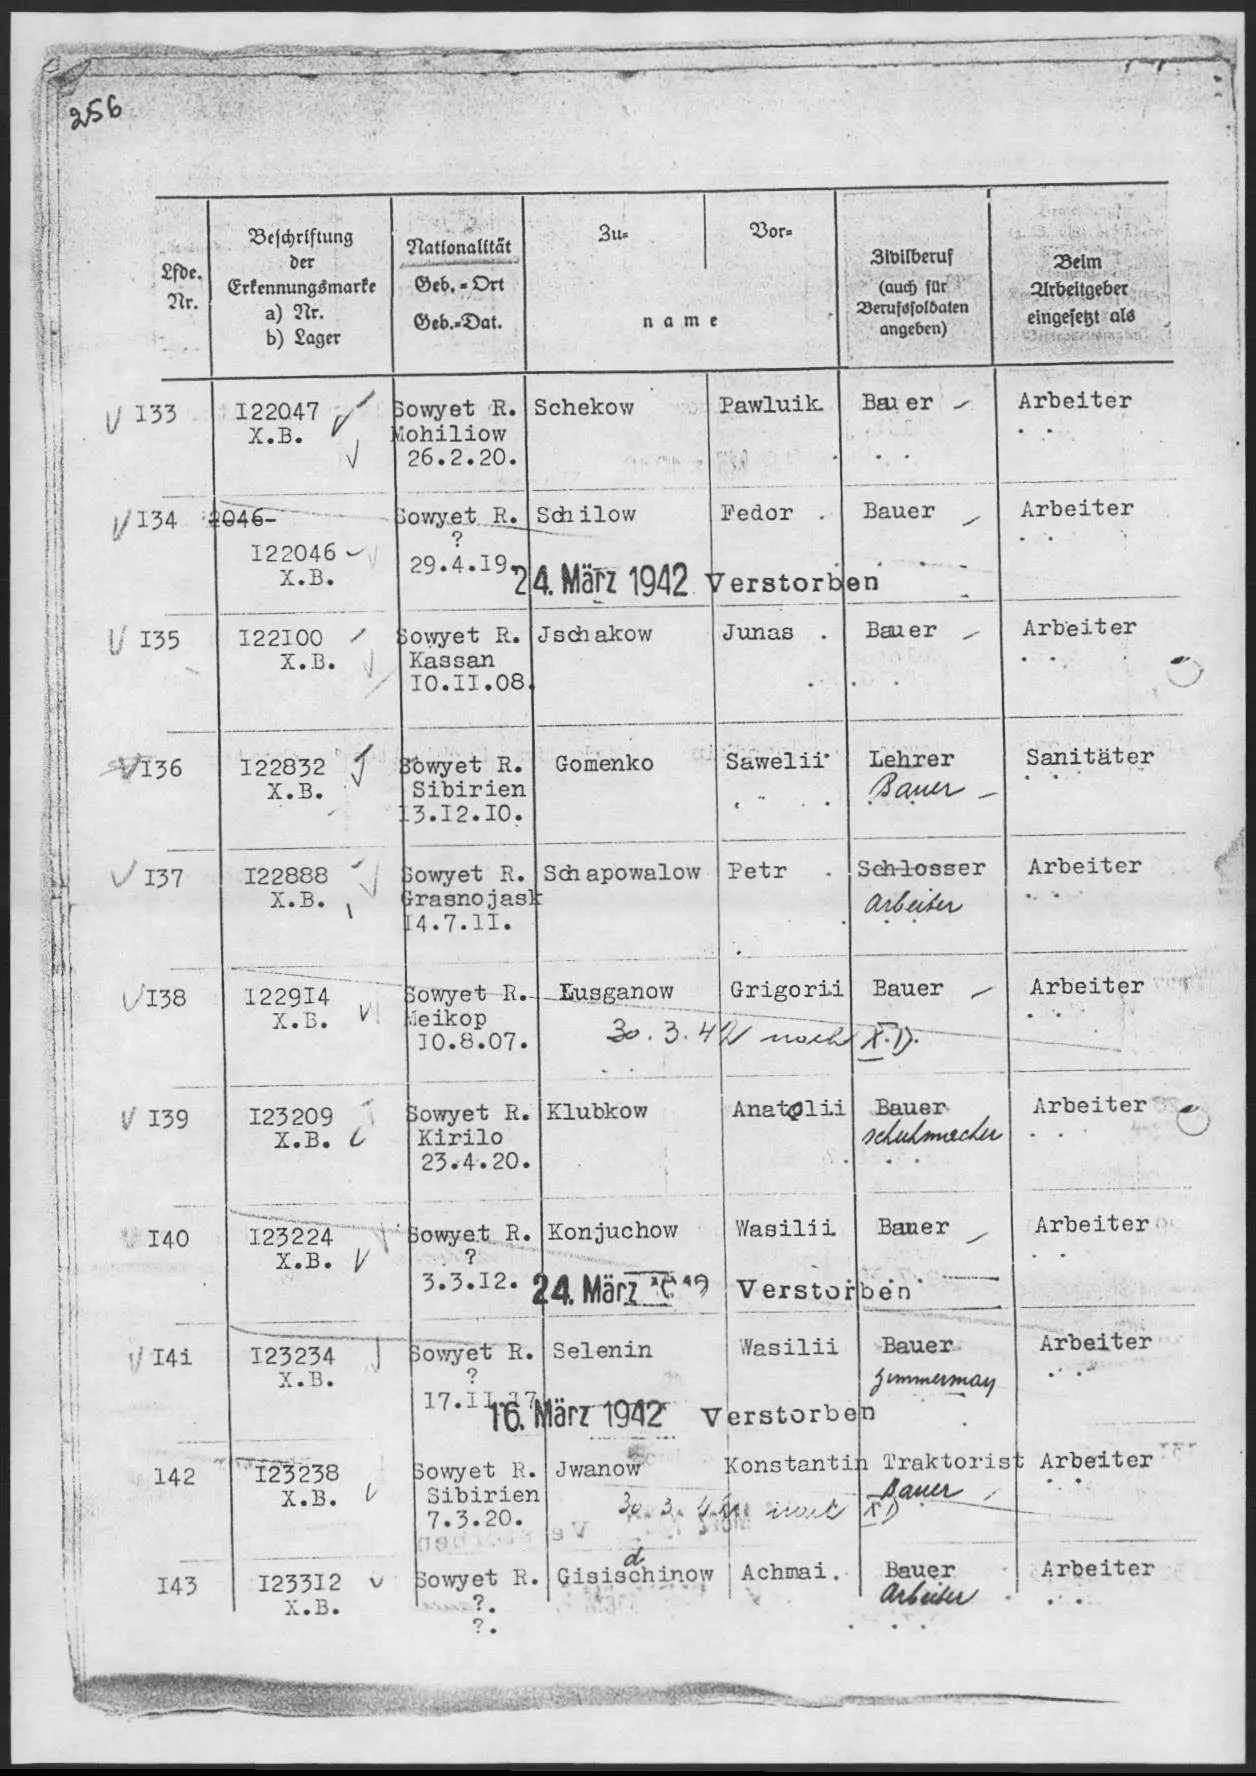 256
Lfde. Nr.
Beschriftung der Erkennungsmarke a) Nr. b) Lager
Nationalität Geb.-Ort Geb.-Dat.
Zu- Vor-
name
Zivilberuf (auch für Berufssoldaten angeben)
Beim Arbeitgeber eingesetzt als
I33 I22047 Sowyet R. Schekow Pawluik Bauer Arbeiter
X.B. Mohiliow
26.2.20.
I34 2046- Sowyet R. Schilow Fedor Bauer Arbeiter
?
I22046 29.4.I9.
X.B. 24. März 1942 Verstorben
I35 I22I00 Sowyet R. Jschakow Junas Bauer Arbeiter
X.B. Kassan
I0.II.08.
I36 I22832 Sowyet R. Gomenko Sawelii Lehrer Sanitäter
X.B. Sibirien Bauer
I3.I2.I0.
I37 I22888 Sowyet R. Schapowalow Petr Schlosser Arbeiter
X.B. Grasnojask Arbeiter
I4.7.II.
I38 I229I4 Sowyet R. Lusganow Grigorii Bauer Arbeiter
X.B. Meikop
I0.8.07. 30.3.42 nach X.D.
I39 I23209 Sowyet R. Klubkow Anatolii Bauer Arbeiter
X.B. Kirilo Schuhmacher
23.4.20.
I40 I23224 Sowyet R. Konjuchow Wasilii Bauer Arbeiter
X.B. ?
3.3.I2. 24. März Verstorben
I4i I23234 Sowyet R. Selenin Wasilii Bauer Arbeiter
X.B. ? Zimmerman
I7.II.I7 16. März 1942 Verstorben
I42 I23238 Sowyet R. Jwanow Konstantin Traktorist Arbeiter
X.B. Sibirien Bauer
7.3.20. 30.3.42 nach XD
I43 I233I2 Sowyet R. Gisischinow Achmai. Bauer Arbeiter
d
X.B. ?. Arbeiter
?.